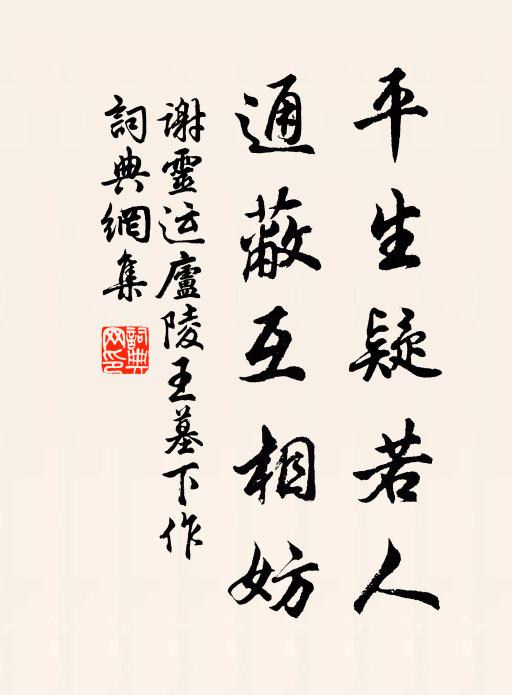 平生疑若人
通蔽互相妨
謝靈运廬陵王墓下作
詞典網集
詞典網印